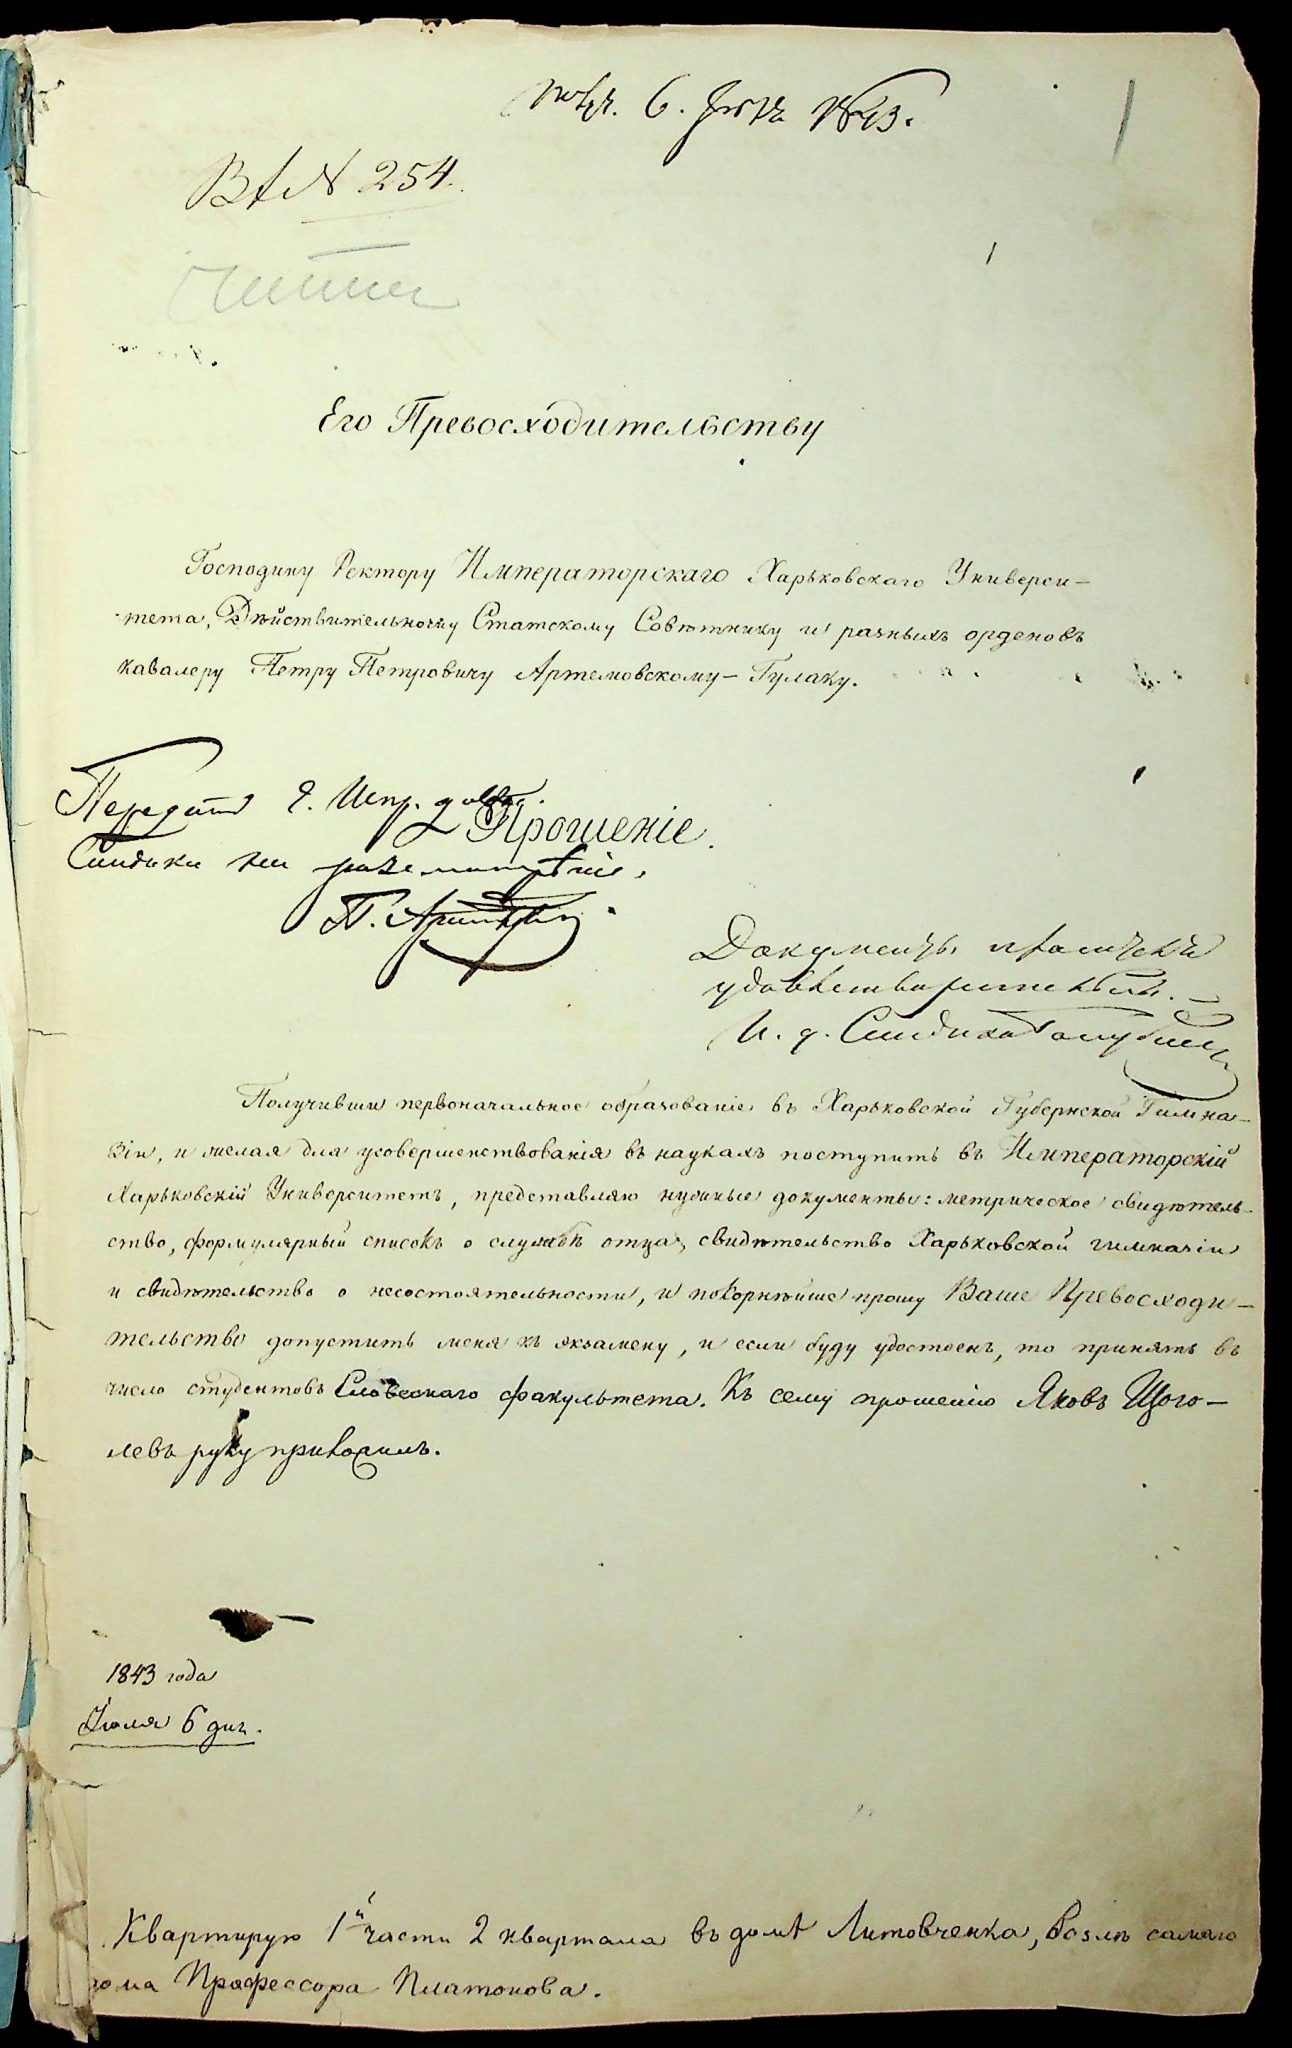 6. 1843.
1
№ 254.
Его Превосходительству
Господину Ректору Императорскаго Харьковскаго Универси-
тета, Дѣйствительному Статскому Совѣтнику и разныхъ орденовъ
кавалеру Петру Петровичу Артемовскому-Гулаку.
Передать Г. Испр. долж.
Прошеніе.
Синдика на разсмотрѣніе.
П. Артемовскій
Документы
удовлетворительны.
И. д. Синдика
Получивши первоначальное образованіе въ Харьковской Губернской Гимна-
зіи, и желая для усовершенствованія въ наукахъ поступить въ Императорскій
Харьковскій Университетъ, представляю нужные документы: метрическое свидѣтель-
ство, формулярный списокъ о службѣ отца, свидѣтельство Харьковской гимназіи
и свидѣтельство о несостоятельности, и покорнѣйше прошу Ваше Превосходи-
тельство допустить меня къ экзамену, и если буду удостоенъ, то принять въ
число студентовъ Словеснаго факультета. Къ сему прошенію Яковъ Щого-
левъ руку приложилъ.
1843 года
Іюля 6 дня.
Квартирую 1й части 2 квартала въ домѣ Литовченка, возлѣ самаго
дома Профессора Платонова.